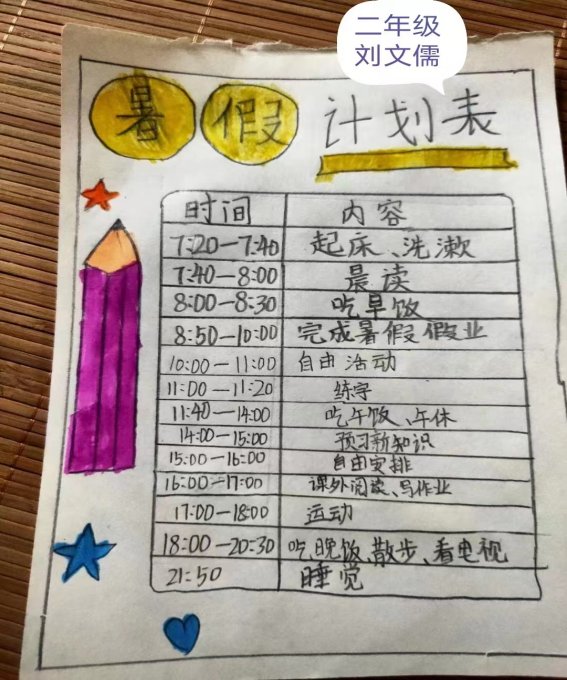 二年级
刘文儒
暑假 计划表
时间 内容
7:20—7:40 起床、洗漱
7:40—8:00 晨读
8:00—8:30 吃早饭
8:50—10:00 完成暑假假业
10:00—11:00 自由活动
11:00—11:20 练字
11:40—14:00 吃午饭、午休
14:00—15:00 预习新知识
15:00—16:00 自由安排
16:00—17:00 课外阅读、写作业
17:00—18:00 运动
18:00—20:30 吃晚饭、散步、看电视
21:50 睡觉